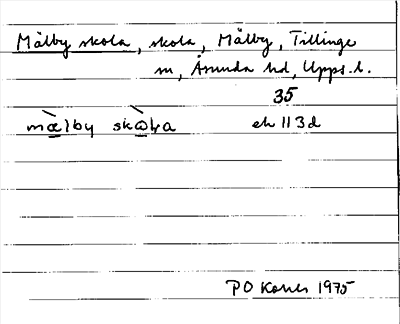 Mälby skola, skola, Mälby, Tillinge
sn, Åsunda hd, Upps.l.
35
mælby skωla ek 113d
PO Korner 1975